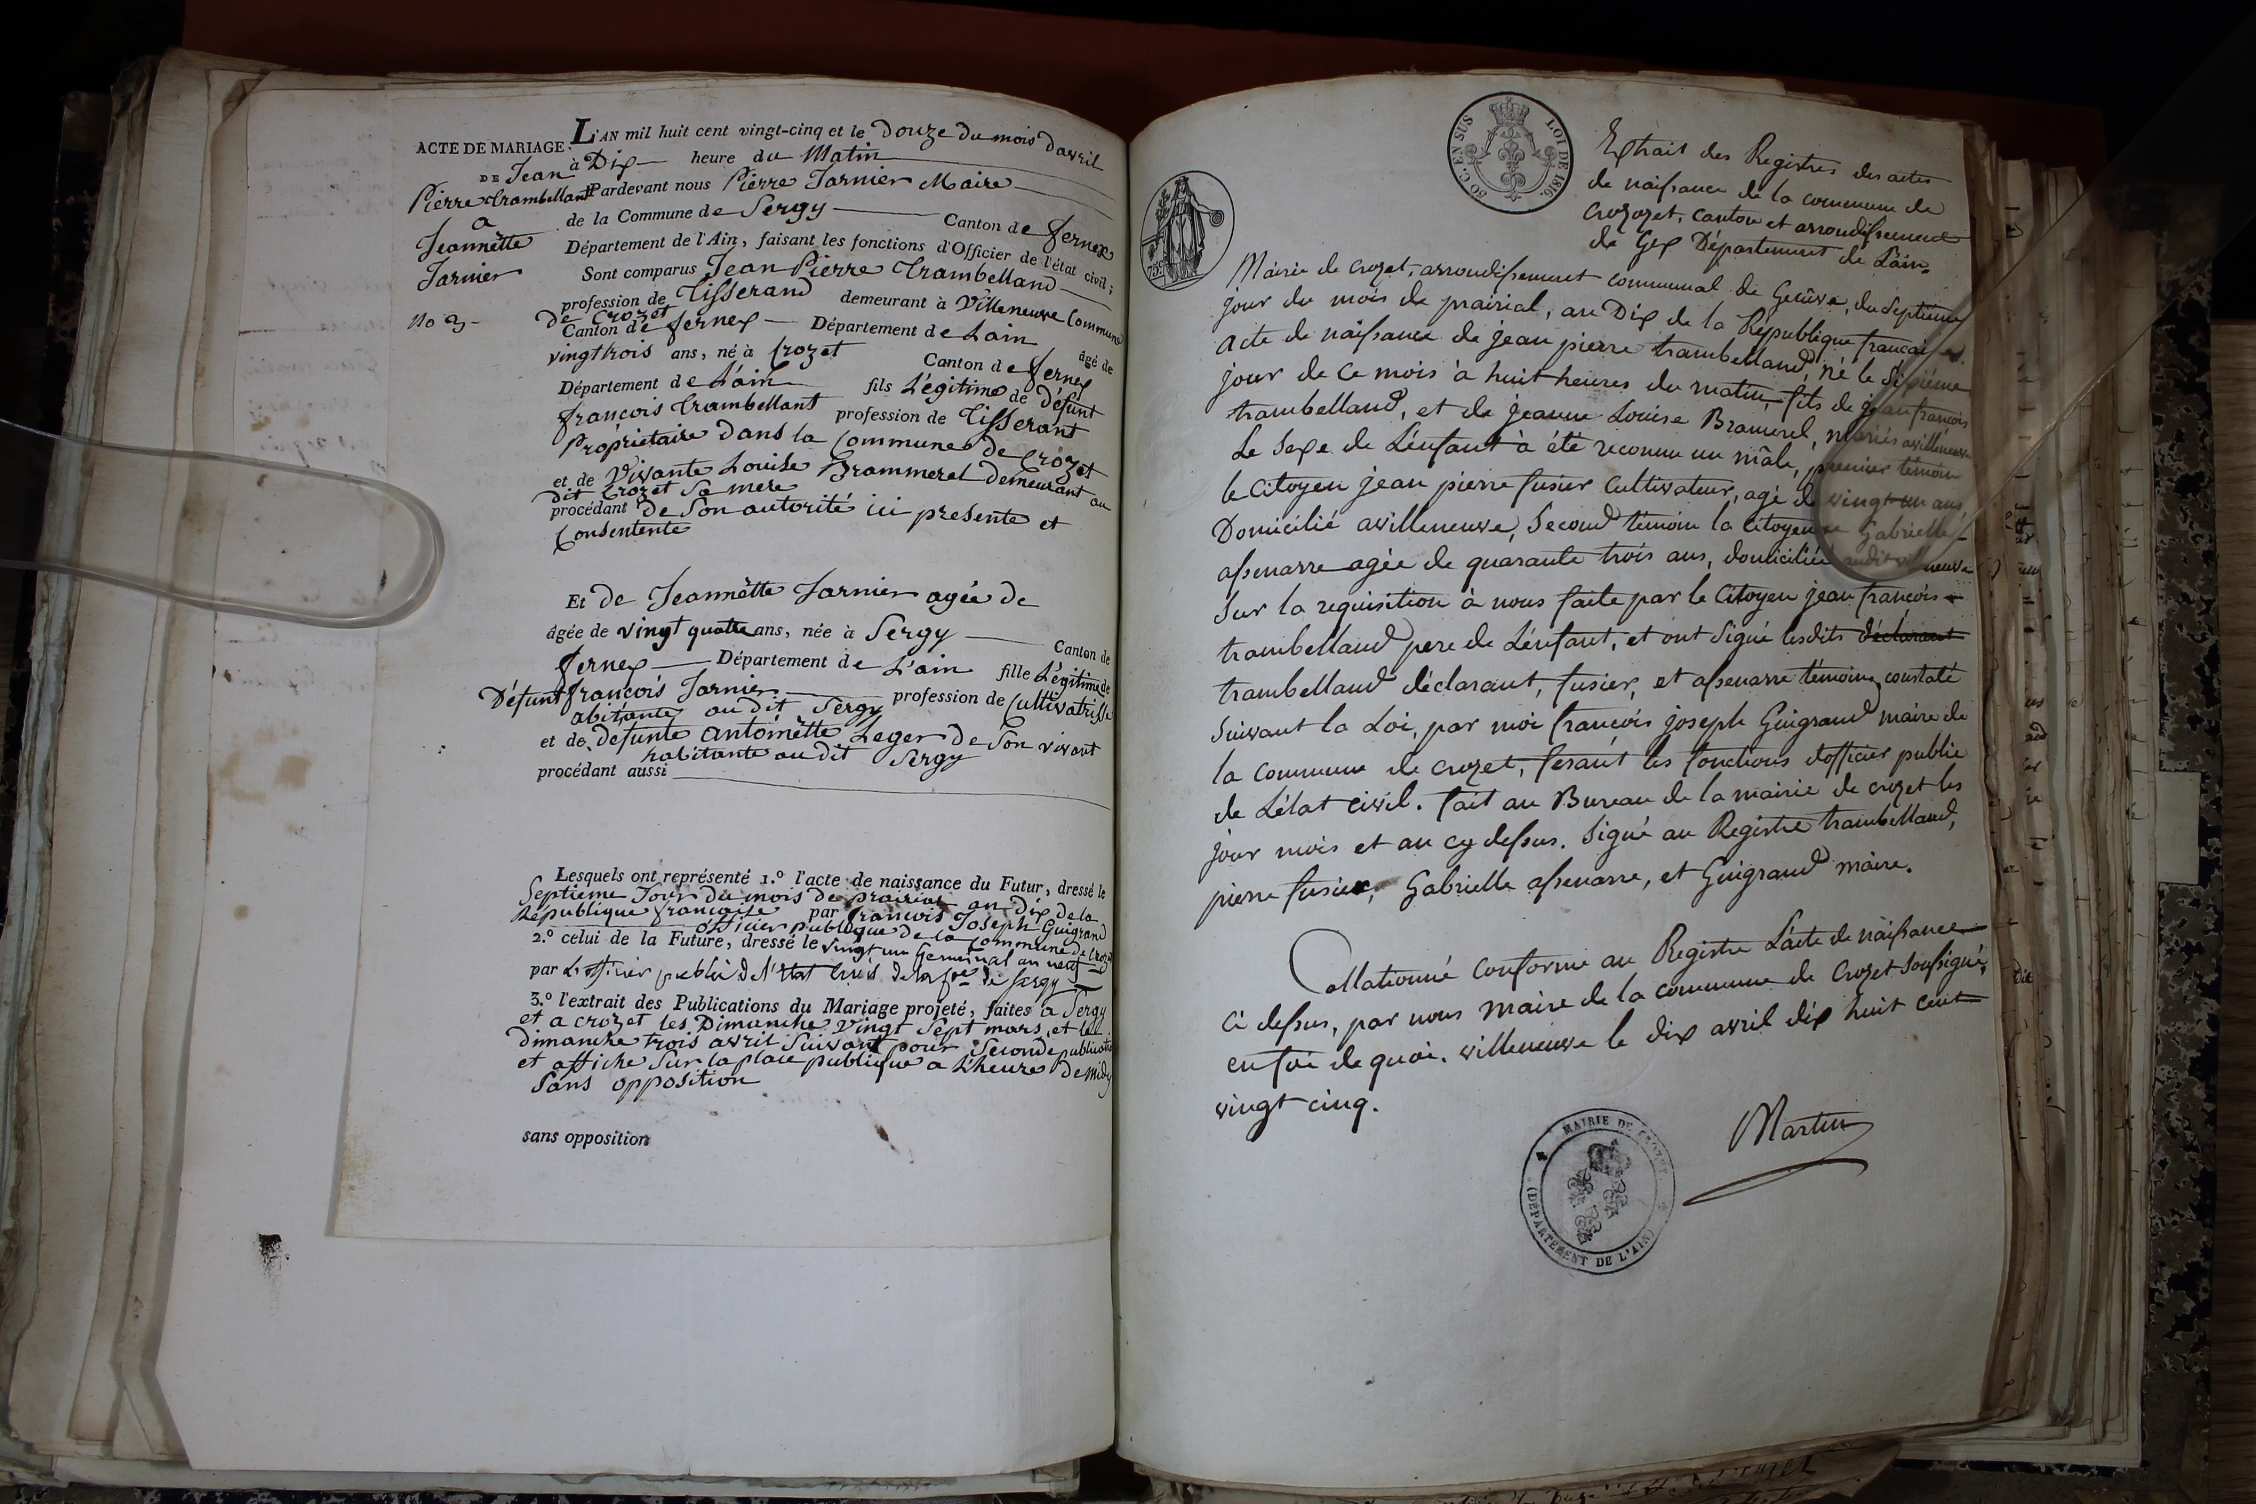 ACTE DE MARIAGE.
DE Jean
Pierre Trambelland
a
Jeannètte
Tarnier
No 3
L'AN mil huit cent vingt-cinq et le Douze du mois davril
à Dix heure du Matin
Pardevant nous Pierre Tarnier Maire
de la Commune de Sergy Canton de fernex
Département de l'Ain, faisant les fonctions d'Officier de l'état civil;
Sont comparus Jean Pierre Trambelland
profession de Tisserand demeurant à Villeneuve Commune
de Crozet
Canton de fernex Département de Lain âgé de
vingtrois ans, né à Crozet Canton de fernex
Département de L'ain fils Légitime de défunt
françois Trambellant profession de Tisserant
Propriètaire dans la Commune de Crozet
et de Vivante Louise Brammerel demeurant au
dit Crozet Sa mere
procédant de Son autorité ici presente et
Consentente
Et de Jeannètte Tarnier agée de
âgée de vingt quatre ans, née à Sergy Canton de
fernex Département de L'ain fille Légitime de
Défunt françois Tarnier profession de Cultivatrisse
abitante au dit Sergy
et de defunte antoinètte Leger de Son vivant
habitante au dit Sergy
procédant aussi
Lesquels ont représenté 1.° l'acte de naissance du Futur, dressé le
Septieme Jour du mois de prairial an dix de la
Republique françaice par francois Joseph Guigrand
officier publique de la Commune de Crozet
2.° celui de la Future, dressé le vingt un Germinal an neuf
par L'officier public de l'Etat Civil de la Cne de Sergy
3.° l'extrait des Publications du Mariage projeté, faites a Sergy
et a crozet les Dimanche vingt Sept mars et le
dimanche trois avril Suivant pour Seconde publication
et affiche Sur la place publique a L'heure de midy
Sans opposition
sans opposition
80 C. EN SUS LOI DE 1816.
Extrait des Registres des actes
de naissance de la commune de
Crozozet, canton et arrondissement
de Gex Département de L'ain.
Mairie de crozet, arrondissement communal de Genève, du Septième
jour du mois de prairial, an Dix de la République francaise.
Acte de naissance de jean pierre trambelland, né le Sixième
jour de ce mois à huit heures du matin, fils de jean françois
trambelland, et de jeanne Louise Bramerel, mariés avilleneuve
Le Sexe de L'enfant à été reconnu un mâle, premier témoin
le Citoyen jean pierre fusier Cultivateur, agé de vingt un ans,
Domicilié avilleneuve, Second témoin la Citoyenne Gabrielle
assenarre agée de quarante trois ans, domiciliée audit villeneuve
Sur la requisition à nous faite par le Citoyen jean françois
trambelland pere de L'enfant, et ont Signé lesdits déclarant
trambelland déclarant, fusier, et assenarre témoins, constaté
Suivant la Loi, par moi françois joseph Guigrand maire de
la commune de crozet, fesant les fonctions d'officier public
de L'état civil. fait au Bureau de la mairie de crozet les
jour mois et an cy dessus. Signé au Registre trambelland,
pierre fusier, Gabrielle assenarre, et Guigrand maire.
Collationné conforme au Registre L'acte de naissance
ci dessus, par nous maire de la commune de Crozet Soussigné,
en foi de quoi. villeneuve le dix avril dix huit cent
vingt cinq.
Martin
MAIRIE DE CROZET
(DÉPARTEMENT DE L'AIN)